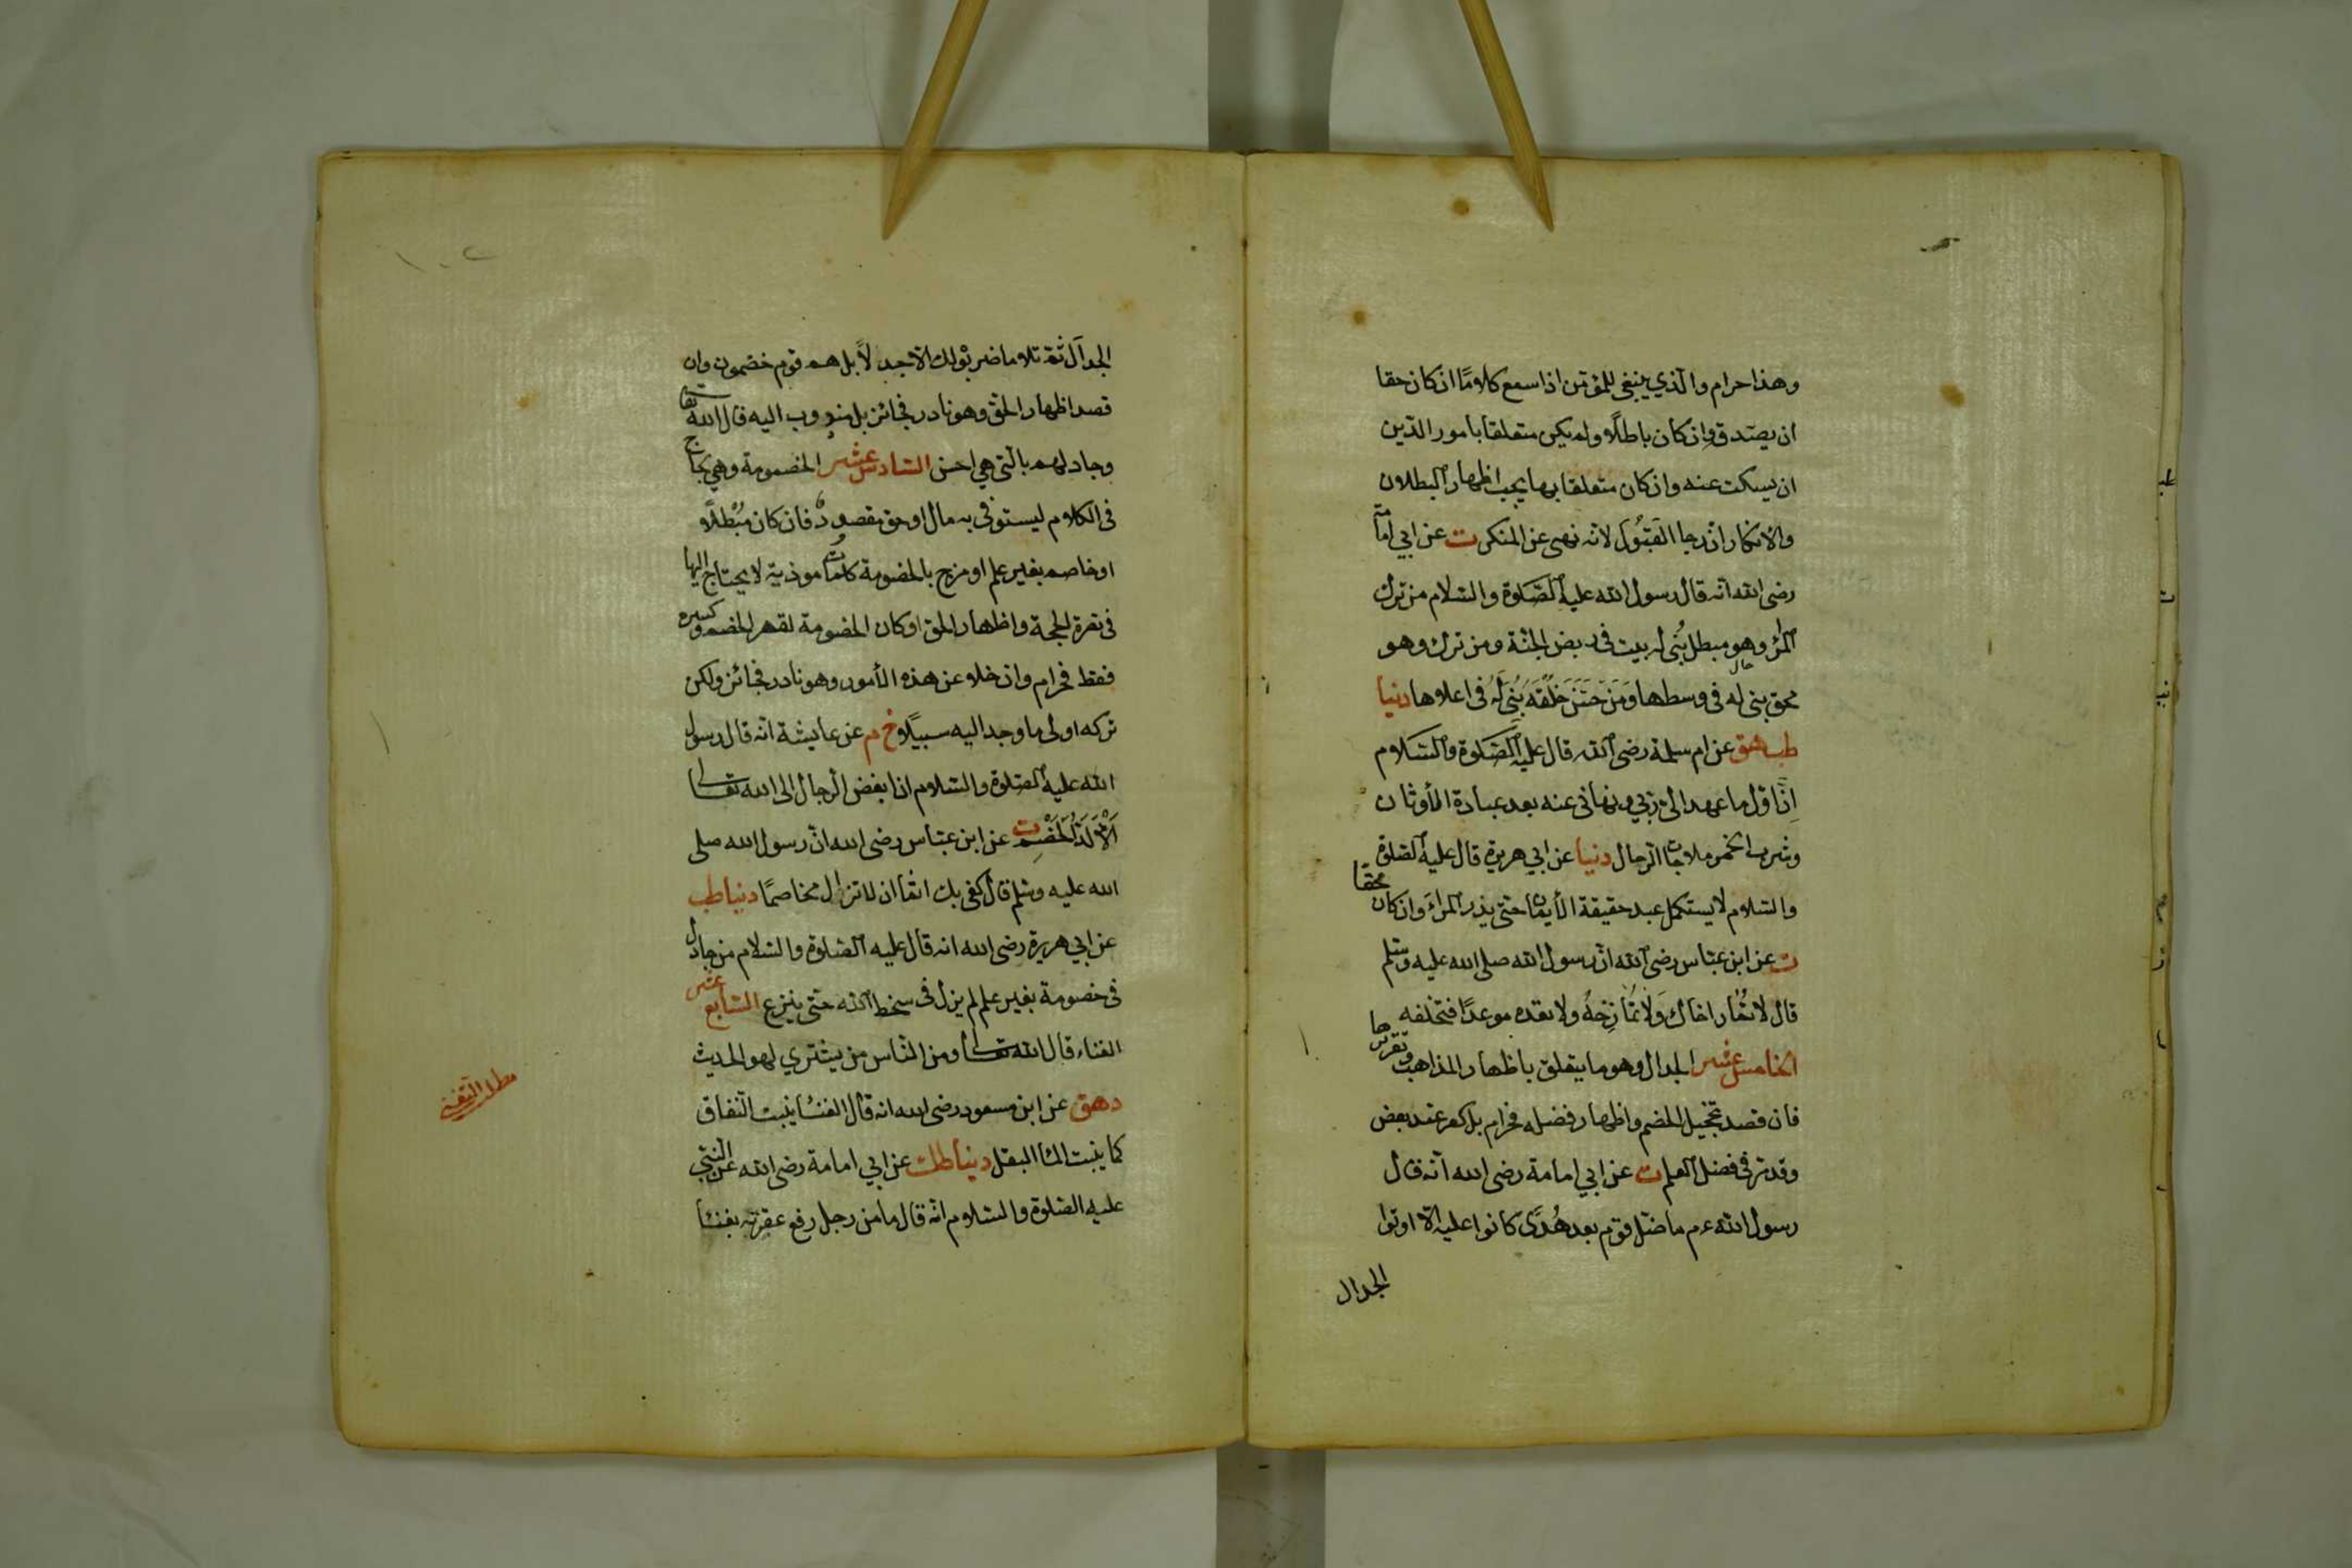 وهذا حرام والذي ينبغي للمؤمن اذا سمع كلامًا ان كان حقا
ان يصدق وان كان باطلًا ولم يكن متعلقا بامور الدّين
ان يسكت عنه وان كان متعلقا بها يجب اظهار البطلان
والانكار ان رجا القَبُولَ لانه نهى عن المنكر ت عن ابي امامة
رضى الله انه قال رسول الله عليه الصّلوة والسّلام من ترك
المرآ وهو مبطل بُنى له بيت فى ربض الجنّة ومن تركه وهو
محق بنى له فى وسطها وَمَنْ حَسَّنَ خُلُقَهُ بُنِىَ لَهُ فى اعلاها دنيا
طب هق عن ام سلمة رضى الله قال عليه الصَّلوة والسَّلام
اِنّ اوّل ما عهد الىّ ربّي ونهانى عنه بعد عبادة الأوثان
وشرب الخمر ملاحات الرجال دنيا عن ابي هريرة قال عليه الصّلوة
والسّلام لا يستكمل عبد حقيقة الأيمان حتّى يذر المراءَ وان كان محقا
ت عن ابن عبّاس رضى الله انّ رسول الله صلى الله عليه وسّلم
قال لا تُمَار اخاك وَلَا تُمَازِحْهُ ولا تعده موعدًا فتخلفه
الخامس عشر الجدال وهو ما يتعلق باظهار المذاهب وتقريرها
فان قصد تخجيل الخصم واظهار فضله فحرام بل كفر عند بعض
وقد مرّ فى فضل العلم ت عن ابي امامة رضى الله انّه قال
رسول الله ءم ما ضلّ قوم بعد هُدًى كانوا عليه الّا اوتوا
الجدال
١٠٢
الجدال ثمّ تلا ما ضربوه لك الّا جدلًا بل هم قوم خصمون وان
قصد اظهار الحقّ وهو نادر فجائز بل مندوب اليه قال الله تعا
وجادلهم بالّتى هي احسن السّادس عشر الخصومة وهي لجاج
فى الكلام ليستوفى به مال او حق مقصود فان كان مُبْطلًا
او خاصم بغير علم او مزج بالخصومة كلمات موذية لا يحتاج اليها
فى نصرة الحجة واظهار الحق او كان الخصومة لقهر الخصم وكسره
فقط فحرام وان خلا عن هذه الأمور وهو نادر فجائز ولكن
تركه اولى ما وجد اليه سبيلًا خ م عن عايشة انّه قال رسول
الله عليه الصّلوة والسّلام انّ ابغض الرّجال الى الله تعالى
اَلْاَلَدُّ الْخَصِم ت عن ابن عبّاس رضى الله انّ رسول الله صلى
الله عليه وسّلم قال كفى بك اثمًا ان لا تزال مخاصمًا دنيا طب
عن ابي هريرة رضى الله انه قال عليه الصّلوة والسّلام من جادل
فى خصومة بغير علم لم يزل فى سخط الله حتّى ينزع السّابع عشر
الغناء قال الله تعالى ومن النّاس من يشتري لهو الحديث
د هق عن ابن مسعود رضى الله انه قال الغناء ينبت النّفاق
كما ينبت الماء البقل دنيا طك عن ابي امامة رضى الله عن النّبيّ
عليه الصّلوة والسّلام انّه قال ما من رجل رفع عقيرته بغناء
مطلب التغنى